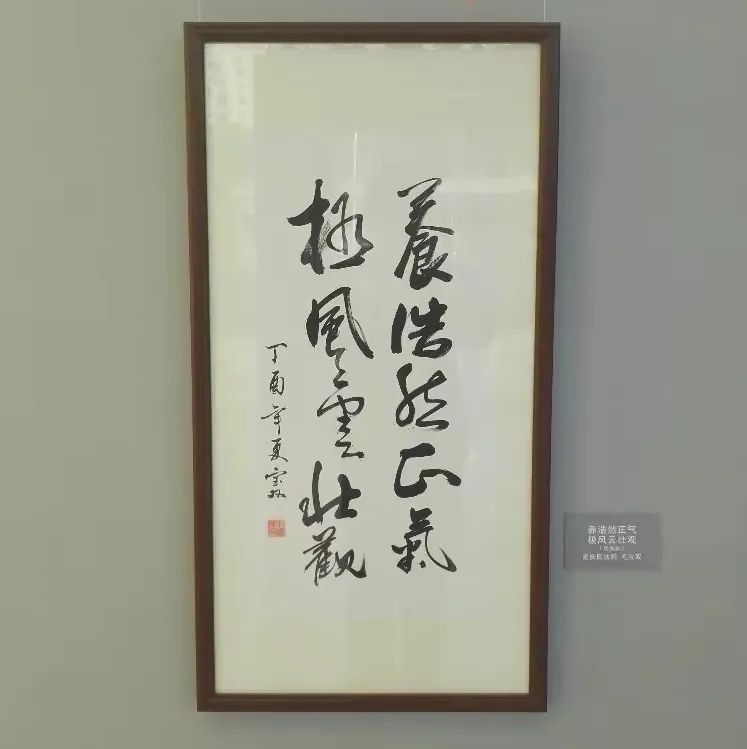 養浩然正氣
極風雲壯觀
丁酉年夏宝林
养浩然正气
极风云壮观